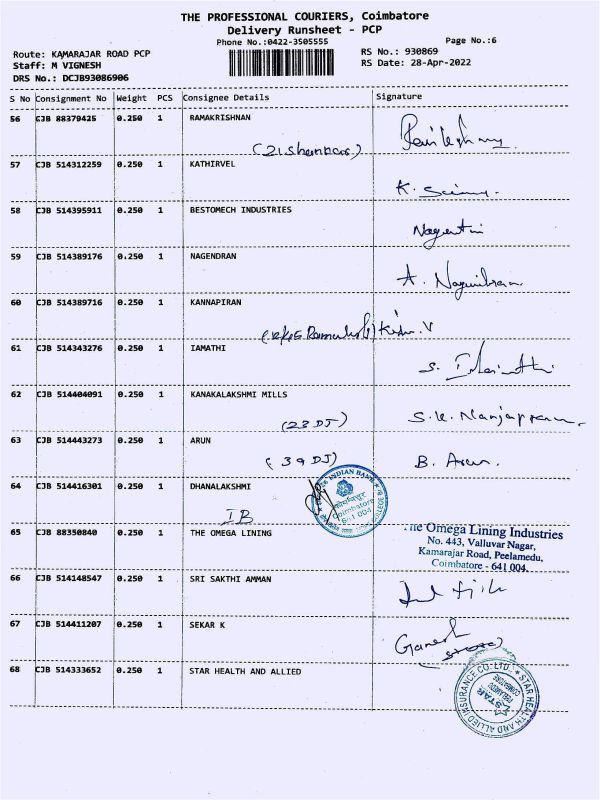 THE PROFESSIONAL COURIERS, Coimbatore
Delivery Runsheet - PCP
Phone No.:0422-3505555
Page No.:6
Route: KAMARAJAR ROAD PCP
RS No.: 930869
Staff: M VIGNESH
RS Date: 28-Apr-2022
DRS No.: DCJB93086906
S No Consignment No Weight PCS Consignee Details Signature
56 CJB 88379425 0.250 1 RAMAKRISHNAN
57 CJB 514312259 0.250 1 KATHIRVEL
K.
58 CJB 514395911 0.250 1 BESTOMECH INDUSTRIES
59 CJB 514389176 0.250 1 NAGENDRAN
A.
60 CJB 514389716 0.250 1 KANNAPIRAN
61 CJB 514343276 0.250 1 IAMATHI
S.
62 CJB 514404091 0.250 1 KANAKALAKSHMI MILLS
(23 DJ)
63 CJB 514443273 0.250 1 ARUN
(39 DJ) B. Arun.
64 CJB 514416301 0.250 1 DHANALAKSHMI
IB
INDIAN BANK
Coimbatore
641 004
65 CJB 88350840 0.250 1 THE OMEGA LINING
The Omega Lining Industries
No. 443, Valluvar Nagar,
Kamarajar Road, Peelamedu,
Coimbatore - 641 004.
66 CJB 514148547 0.250 1 SRI SAKTHI AMMAN
67 CJB 514411207 0.250 1 SEKAR K
Ganesh
68 CJB 514333652 0.250 1 STAR HEALTH AND ALLIED
STAR HEALTH AND ALLIED INSURANCE CO. LTD.
STAR